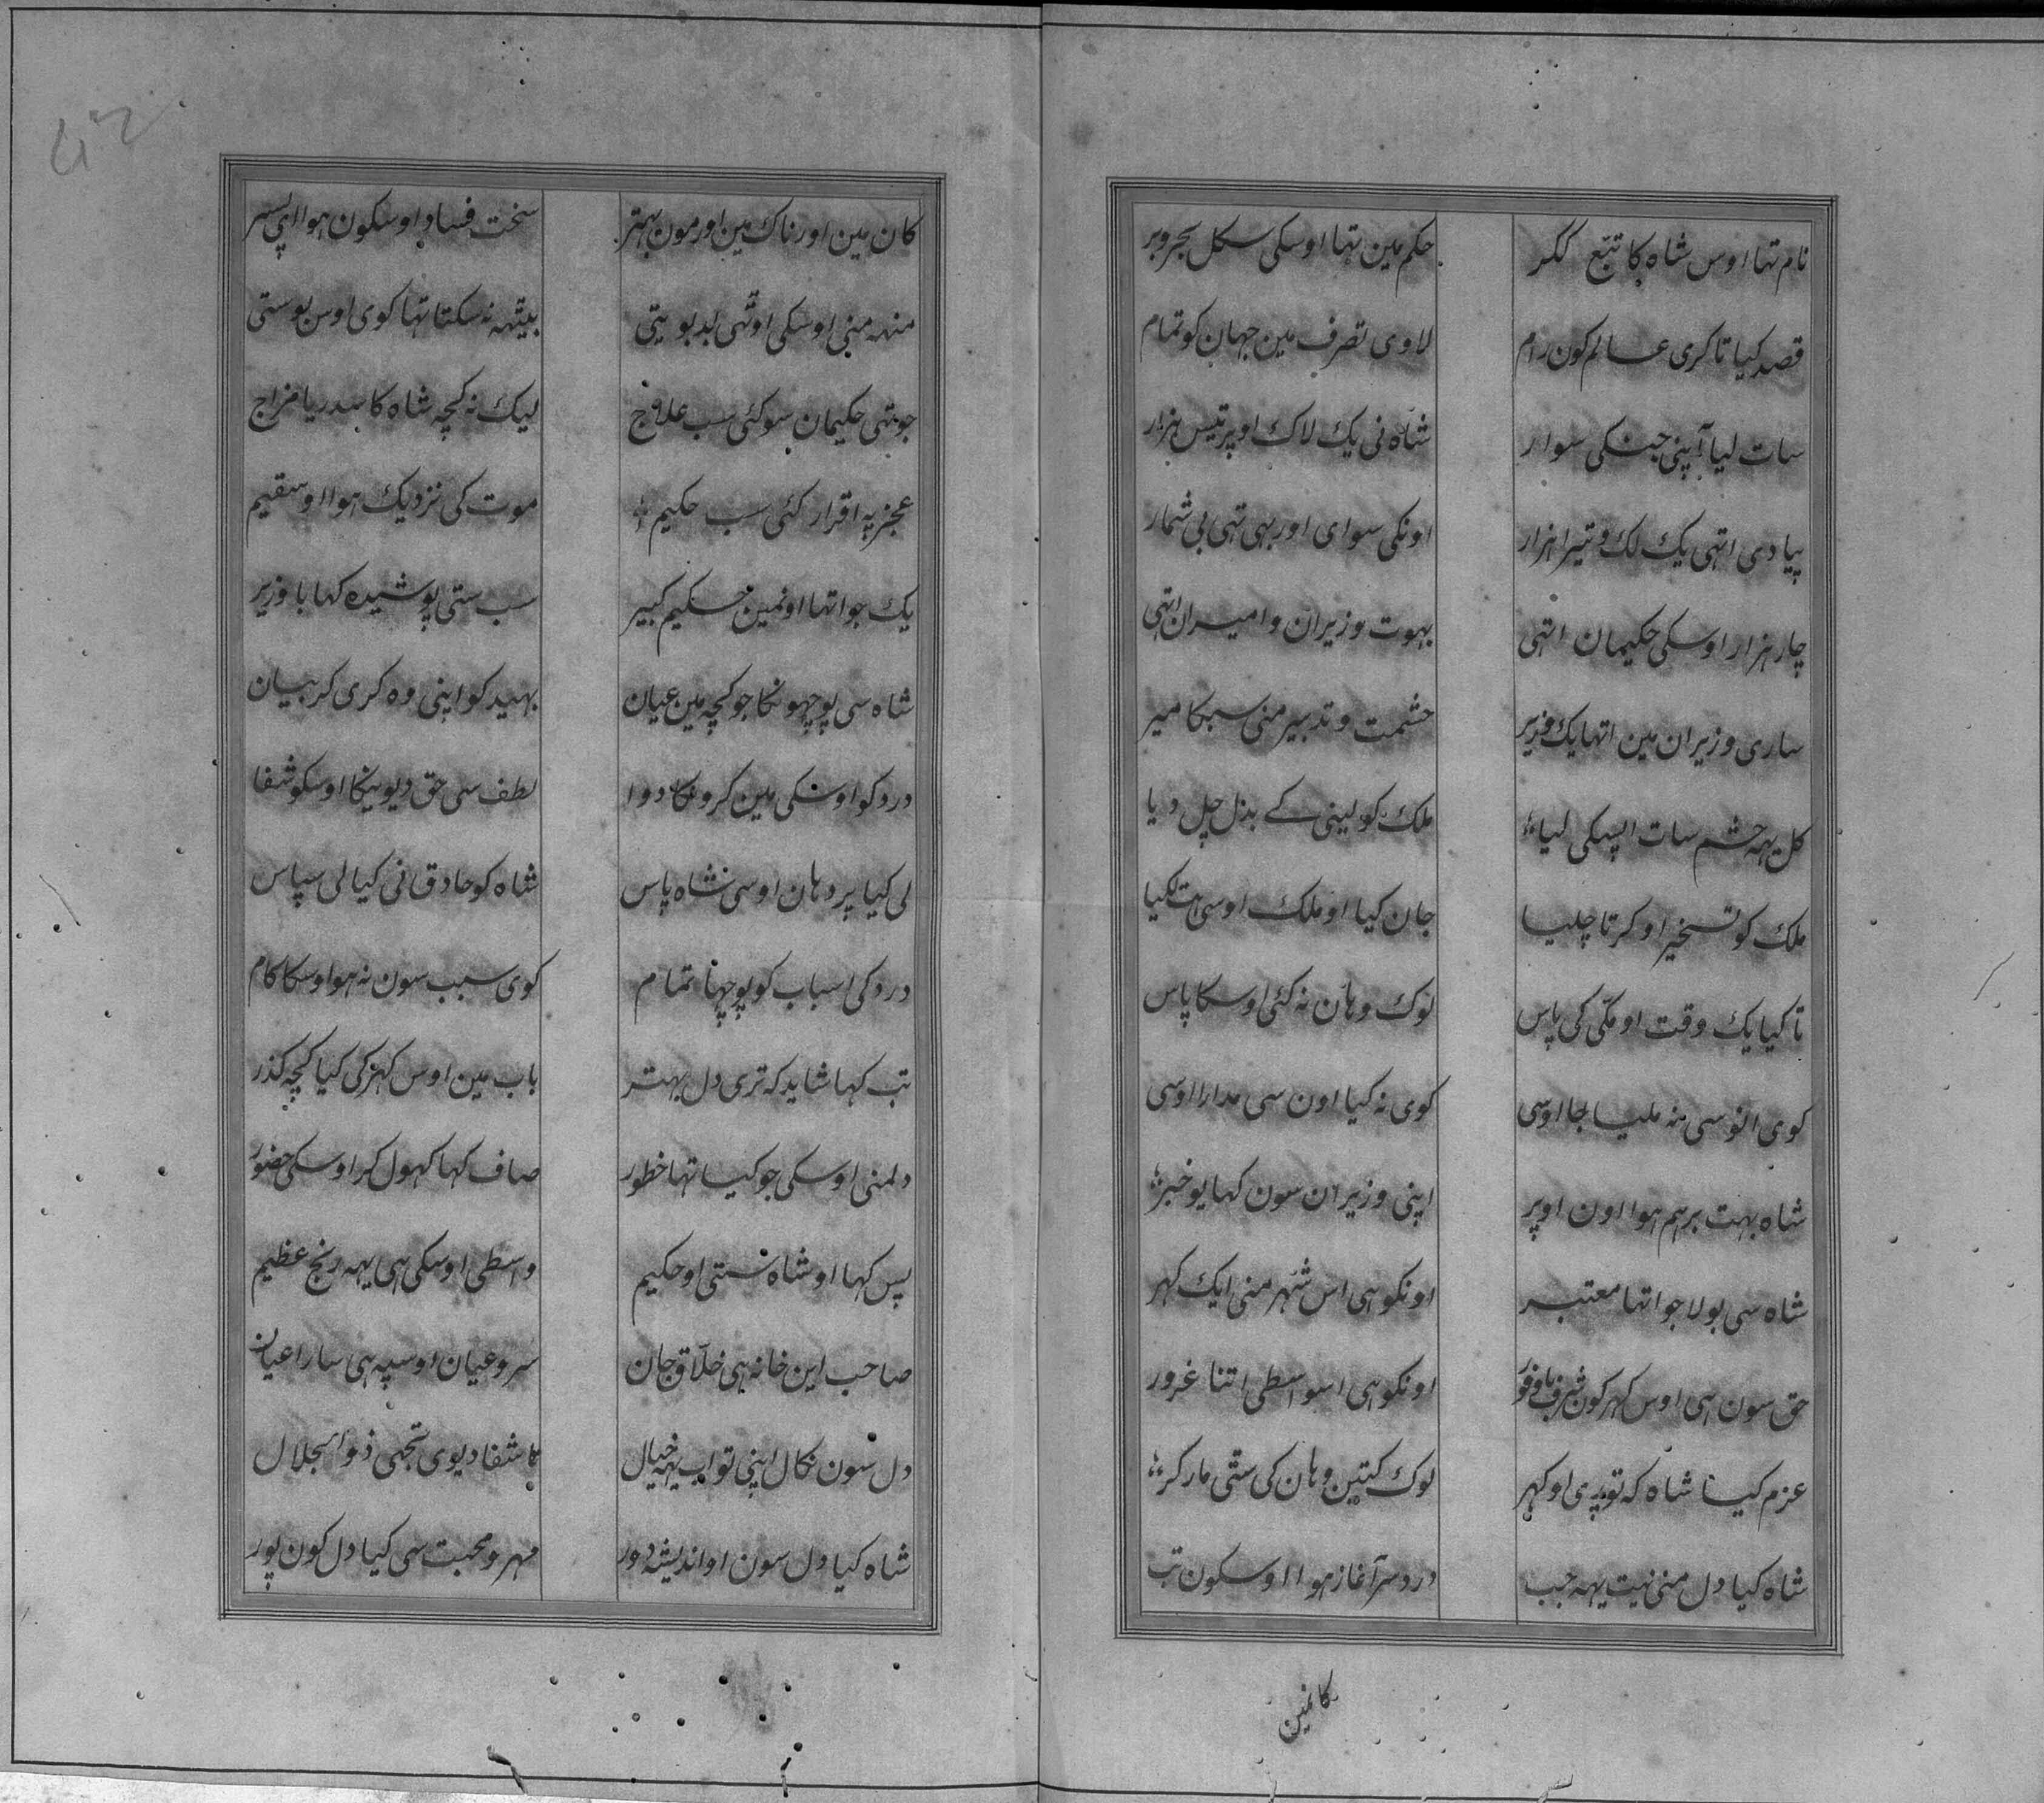 نام تہا اوس شاہ کا تبّع گکر
حکم مین تہا اوسکی سکل بحر و بر
قصد کیا تا کری عالم کون رام
لاوی تصرف مین جہان کو تمام
سات لیا آپنی جنکی سوار
شاہ نی یک لاک اوپر تیس ہزار
پیادی اتہی یک لک و تیرا ہزار
اونکی سوای اور بہی تہی بی شمار
چار ہزار اوسکی حکیمان اتہی
بہوت وزیران و امیران اتہی
ساری وزیران مین اتہا یک وزیر
حشمت و تدبیر منی سبکا میر
کل یہہ حشم سات اپسکی لیا
ملک کو لینی کے بدل چل دیا
ملک کو تسخیر او کرتا چلیا
جان کیا او ملک اوسی ہت لکیا
تا کیا یک وقت او مکّی کی پاس
لوک وہان نہ کئی اوسکا پاس
کوی انو سی نہ ملیا جا اوسی
کوی نہ کیا اون سی مدارا اوسی
شاہ بہت برہم ہوا اون اوپر
اپنی وزیران سون کہا یو خبر
شاہ سی بولا جو اتہا معتبر
اونکو ہی اس شہر منی ایک کہر
حق سون ہی اوس کہر کون شرف با وفور
اونکو ہی اسواسطی اتنا غرور
عزم کیا شاہ کہ توڑی او کہر
لوک کیتین وہان کی ستی مار کر
شاہ کیا دل منی نیت یہہ جب
درد سر آغاز ہوا اوسکون تب
کانمین
کان مین اور ناک مین اور مون بہتر
سخت فساد اوسکون ہوا ای پسر
منہہ منی اوسکی اوتہی بدبو یتی
بیتہہ نہ سکتا تہا کوی اوس بو ستی
جو تہی حکیمان سو کئی سب علاج
لیک نہ کچہ شاہ کا سدریا مزاج
عجز پہ اقرار کئی سب حکیم
موت کی نزدیک ہوا او سقیم
یک جو اتہا اونمین حکیم کبیر
سب ستی پوشیدہ کہا با وزیر
شاہ سی پوچہونکا جو کچہ مین عیان
بہید کو اپنی وہ کری کر بیان
درد کو اوسکی مین کرونکا دوا
لطف سی حق دیوینکا اوسکو شفا
لی کیا پردہان اوسی نشاہ پاس
شاہ کو حاذق نی کیا لی سپاس
درد کی اسباب کو پوچہنا تمام
کوی سبب سون نہ ہوا اوسکا کام
تب کہا شاید کہ تری دل بہتر
باب مین اوس کہر کی کیا کچہ کذر
دلمنی اوسکی جو کیا تہا خطور
صاف کہا کہول کر اوسکی حضور
پس کہا او شاہ ستی او حکیم
واسطی اوسکی ہی یہہ رنج عظیم
صاحب این خانہ ہی خلّاق جان
سر و عیان اوسپہ ہی سارا عیان
دل سون نکال اپنی تو اب یہہ خیال
تا شفا دیوی تجہی ذو الجلال
شاہ کیا دل سون او اندیشہ دور
مہر و محبت سی کیا دل کون پور